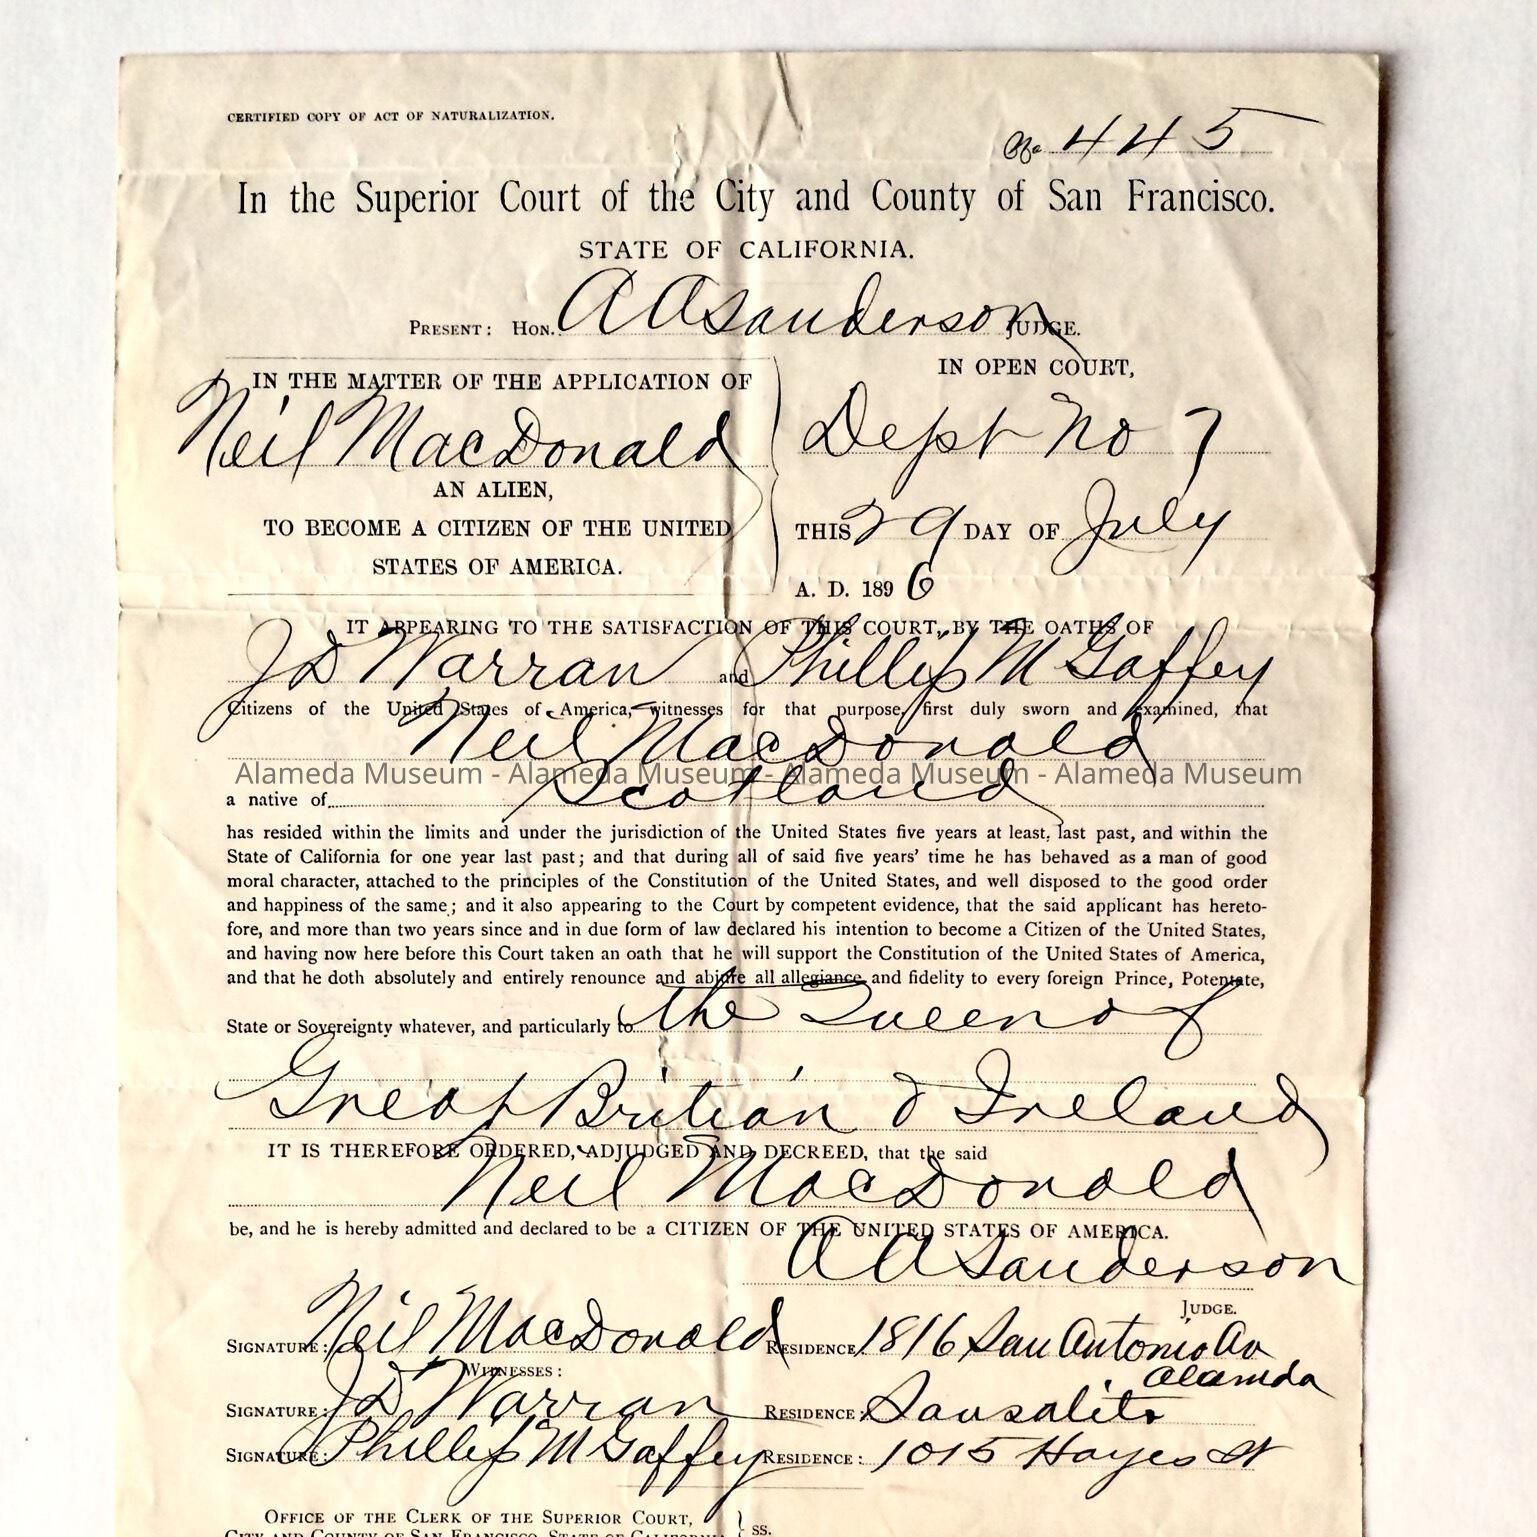 CERTIFIED COPY OF ACT OF NATURALIZATION.
No 445
In the Superior Court of the City and County of San Francisco.
STATE OF CALIFORNIA.
PRESENT: HON. A A Sanderson JUDGE.
IN THE MATTER OF THE APPLICATION OF
Neil MacDonald
AN ALIEN,
TO BECOME A CITIZEN OF THE UNITED
STATES OF AMERICA.
IN OPEN COURT,
Dept No 7
THIS 29 DAY OF July
A. D. 1896
IT APPEARING TO THE SATISFACTION OF THIS COURT, BY THE OATHS OF
J D Warran and Phillip M Gaffey
Citizens of the United States of America, witnesses for that purpose, first duly sworn and examined, that
Neil MacDonald
Alameda Museum - Alameda Museum - Alameda Museum - Alameda Museum
a native of Scotland
has resided within the limits and under the jurisdiction of the United States five years at least, last past, and within the
State of California for one year last past; and that during all of said five years' time he has behaved as a man of good
moral character, attached to the principles of the Constitution of the United States, and well disposed to the good order
and happiness of the same; and it also appearing to the Court by competent evidence, that the said applicant has hereto-
fore, and more than two years since and in due form of law declared his intention to become a Citizen of the United States,
and having now here before this Court taken an oath that he will support the Constitution of the United States of America,
and that he doth absolutely and entirely renounce and abjure all allegiance and fidelity to every foreign Prince, Potentate,
State or Sovereignty whatever, and particularly to the Queen of
Great Britian & Ireland
IT IS THEREFORE ORDERED, ADJUDGED AND DECREED, that the said
Neil MacDonald
be, and he is hereby admitted and declared to be a CITIZEN OF THE UNITED STATES OF AMERICA.
A A Sanderson
JUDGE.
SIGNATURE: Neil MacDonald RESIDENCE 1816 San Antonio Av
Alameda
WITNESSES:
SIGNATURE: J D Warran RESIDENCE: Sausalito
SIGNATURE: Phillip M Gaffey RESIDENCE: 1015 Hayes St
OFFICE OF THE CLERK OF THE SUPERIOR COURT,
CITY AND COUNTY OF SAN FRANCISCO, STATE OF CALIFORNIA
ss.